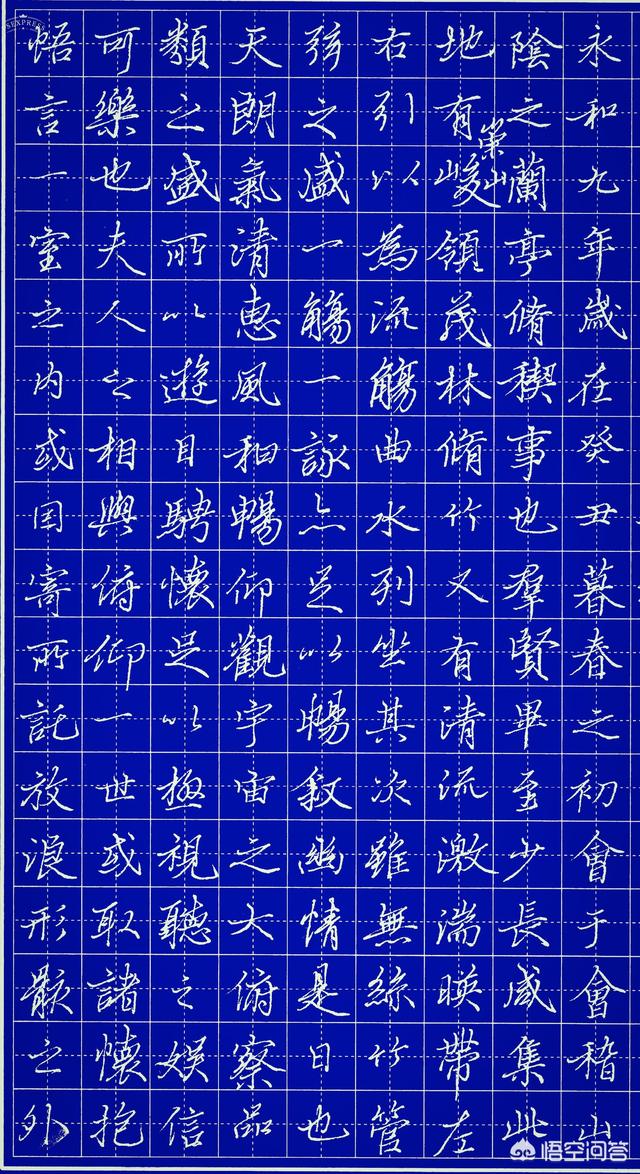 永和九年歲在癸丑暮春之初會于會稽山
陰之蘭亭脩稧事也羣賢畢至少長咸集此
地有崇山峻領茂林脩竹又有清流激湍暎帶左
右引以為流觴曲水列坐其次雖無絲竹管
弦之盛一觴一詠亦足以暢敘幽情是日也
天朗氣清惠風和暢仰觀宇宙之大俯察品
類之盛所以遊目騁懷足以極視聽之娛信
可樂也夫人之相與俯仰一世或取諸懷抱
悟言一室之内或因寄所託放浪形骸之外
悟空问答